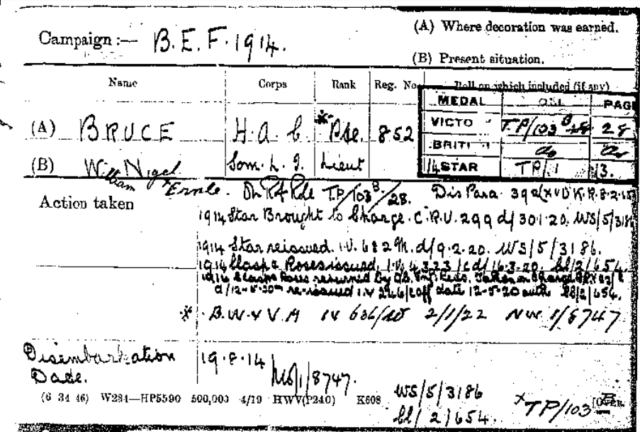 Campaign :— B.E.F. 1914.
(A) Where decoration was earned.
(B) Present situation.
Name Corps Rank Reg. No. Roll on which included (if any)
MEDAL PAGE
(A) BRUCE H.A.C. * Pte. 852
VICTO TP/103 B 28
BRITI do do
(B) William Nigel Ernle. Som. L.I. Lieut
14 STAR TP/1 3.
Action taken
TP/103 B/28. Dis Para. 392 (XVI) K.R.
1914 Star Brought to Charge. C.R.V. 299 d/ 30.1.20. WS/5/3186
1914 Star reissued. I.V. 682 d/9.2.20. WS/5/3186.
1914 Clasp & Roses issued. I.V. 4323 d/16.3.20. 2/654
1914 Clasp & Roses returned by
re-issued I.V. date 12-5-20 auth 2/654.
* B.W. & V.M IV 636/ 2/1/22 NW 1/8747
Disembarkation Date.
19.8.14
1/8747.
(6 34 46) W234—HP5590 500,000 4/19 HWV(P240) K608
WS/5/3186
2/654.
* TP/103 B
[OVER.